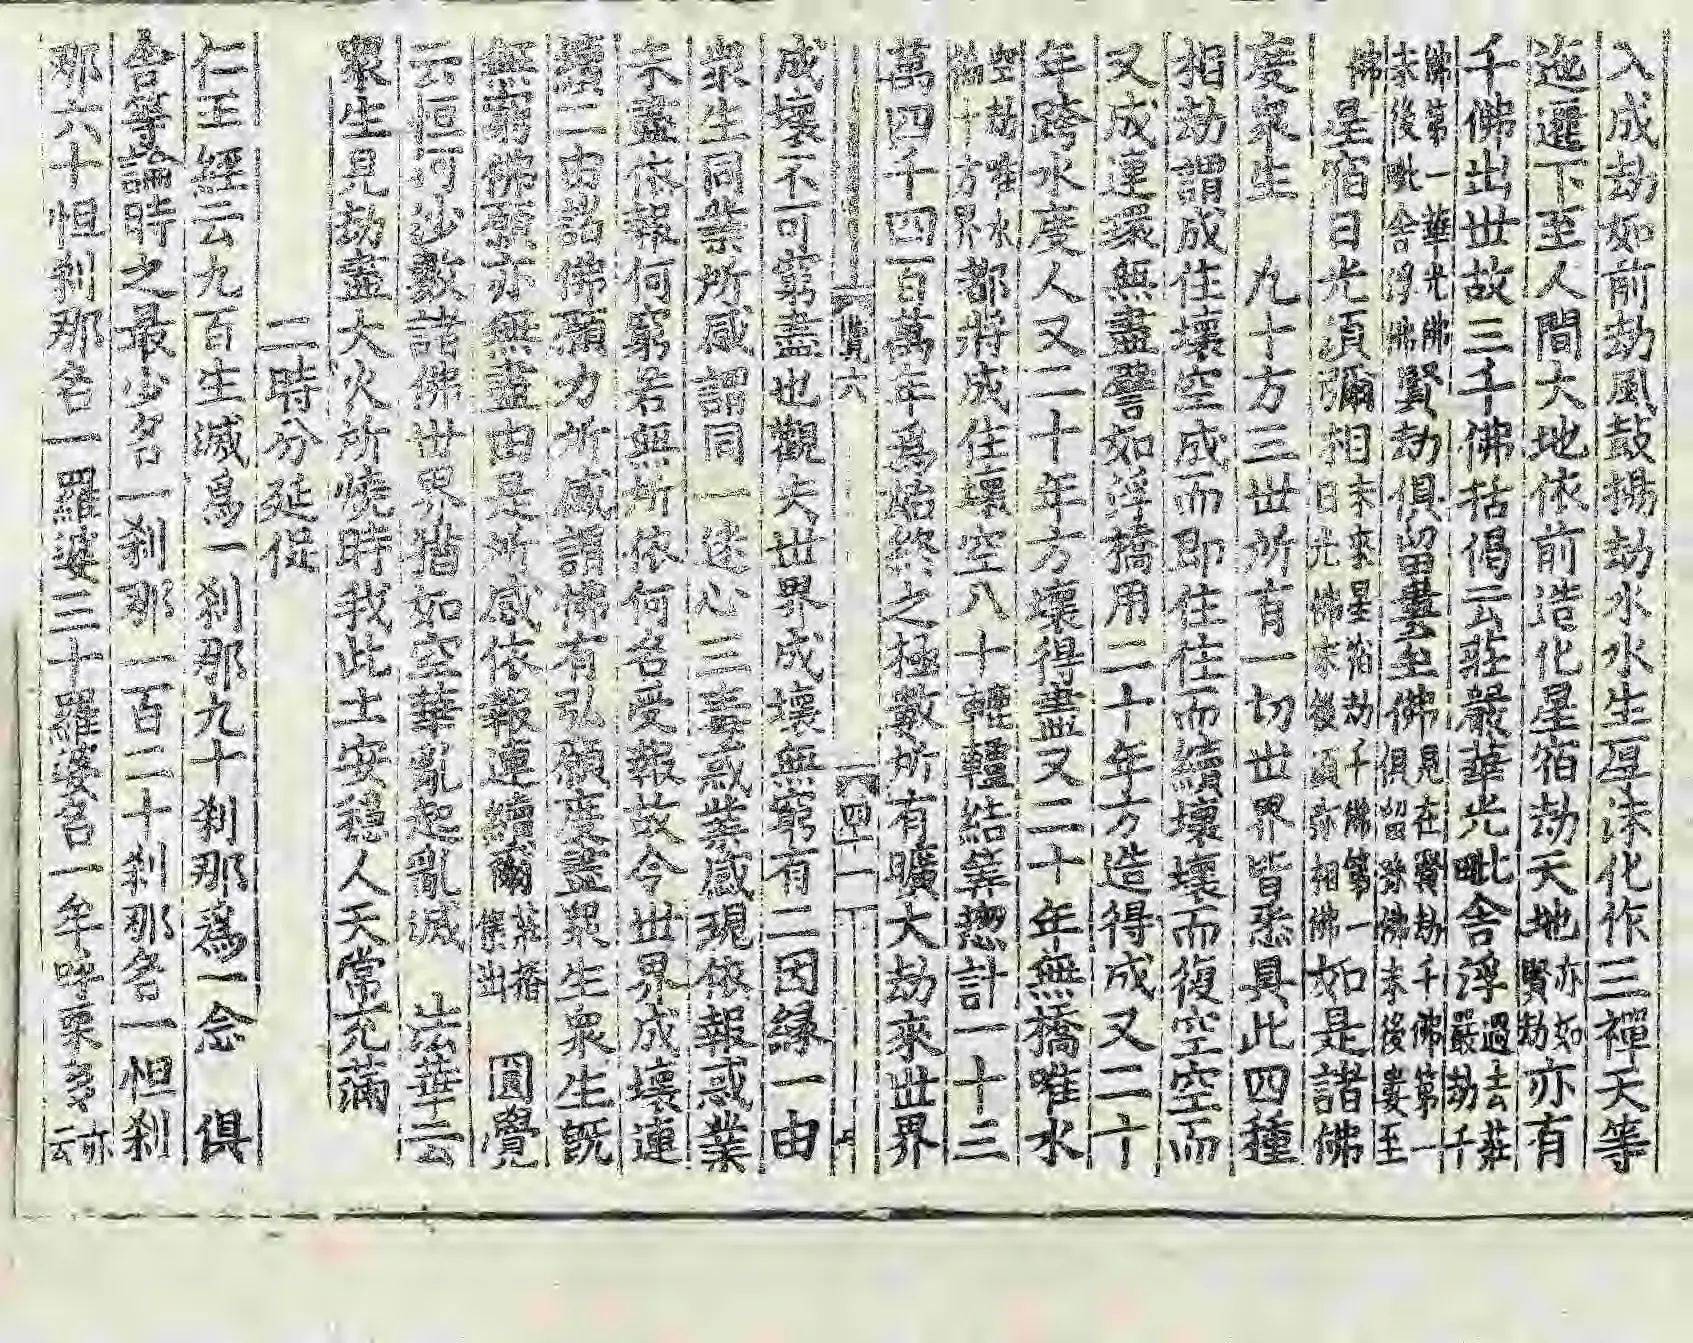 入成劫如前劫風鼓揚劫水水生厚沫化作三禪天等
迤邐下至人間大地依前造化星宿劫天地亦如賢劫亦有
千佛出世故三千佛括偈云莊嚴華光毗舍浮過去莊嚴劫千
佛第一華光佛末後毗舍浮佛賢劫俱留婁至佛見在賢劫千佛第一俱留孫佛末後婁至
佛星宿日光須彌相未來星宿劫千佛第一日光佛末後須弥相佛如是諸佛
度衆生　九十方三世所有一切世界皆悉具此四種
相劫謂成住壞空成而即住住而續壞壞而復空空而
又成連環無盡譬如浮橋用二十年方造得成又二十
年跨水度人又二十年方壞得盡又二十年無橋唯水
空劫唯水滿十方界都將成住壞空八十轆轤結筭揔計一十三
萬四千四百萬年爲始終之極數所有曠大劫來世界
寶六　四十一
成壞不可窮盡也觀夫世界成壞無窮有二因緣一由
衆生同業所感謂同一迷心三毒惑業感現依報惑業
未盡依報何窮若無所依何名受報故令世界成壞連
續二由諸佛願力所感謂佛有弘願度盡衆生衆生旣
無窮佛願亦無盡由是所感依報連續爾　圓覺
云恒河沙數諸佛世界猶如空華亂起亂滅　法華云
衆生見劫盡大火所燒時我此土安穩人天常充滿
二時分延促
仁王經云九百生滅爲一刹那九十刹那爲一念　俱
舍等論時之最少名一刹那一百二十刹那名一怛刹
那六十怛刹那名一羅婆三十羅婆名一牟呼栗多亦云